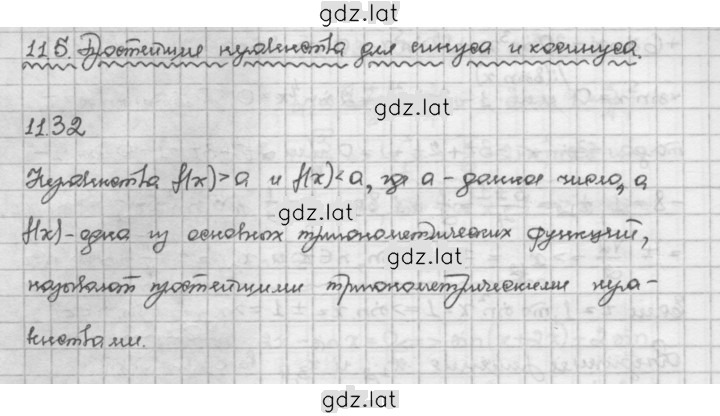 gdz.lat
11.5. Простейшие неравенства для синуса и косинуса.
gdz.lat
11.32
Неравенства f(x)>a и f(x)<a, где a - данное число, а
gdz.lat
f(x) - одна из основных тригонометрических функций,
gdz.lat
называют простейшими тригонометрическими нера-
венствами.
gdz.lat